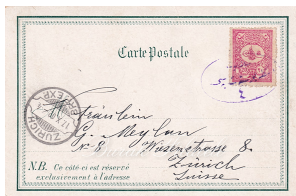 Carte Postale
ZÜRICH
BRF. EXP.
Fräulein
G. Meylan
Wiesenstrasse 8
Zürich
Suisse
N.B. Ce côté-ci est réservé
exclusivement à l'adresse